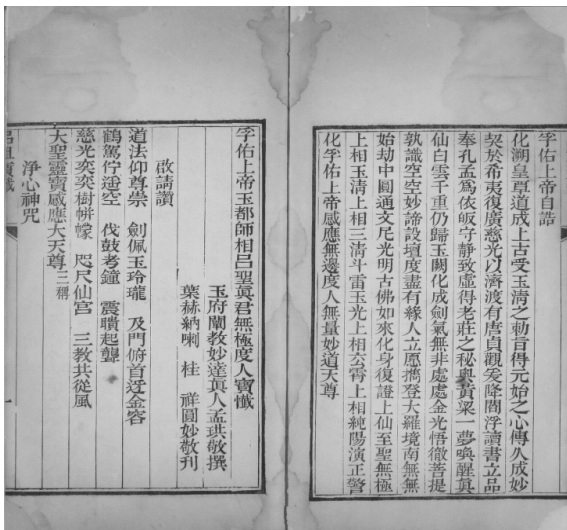 孚佑上帝自誥
化溯皇尊道成上古受玉清之勅旨得元始之心傳久成妙
契於希夷復廣慈光以濟渡有唐貞觀爰降閻浮讀書立品
奉孔孟為依皈守靜致虛得老莊之秘奧黃粱一夢喚醒真
仙白雲千重仍歸玉闕化成劍氣無非處處金光悟徹菩提
孰識空空妙諦設壇度盡有緣人立愿擕登大羅境南無無
始劫中圓通文尼光明古佛如來化身復證上仙至聖無極
上相玉清上相三清斗雷玉光上相玄霄上相純陽演正警
化孚佑上帝感應無邊度人無量妙道天尊
孚佑上帝玉都師相呂聖真君無極度人寶懺
玉府闡教妙達真人孟珙敬撰
葉赫納喇 桂 祥圓妙敬刊
啟請讚
道法仰尊崇 劍佩玉玲瓏 及門俯首迓金容
鶴駕佇遙空 伐鼓考鐘 震聵起聾
慈光奕奕樹帡幪 咫尺仙宮 三教共從風
大聖靈寶感應大天尊三稱
淨心神咒
一